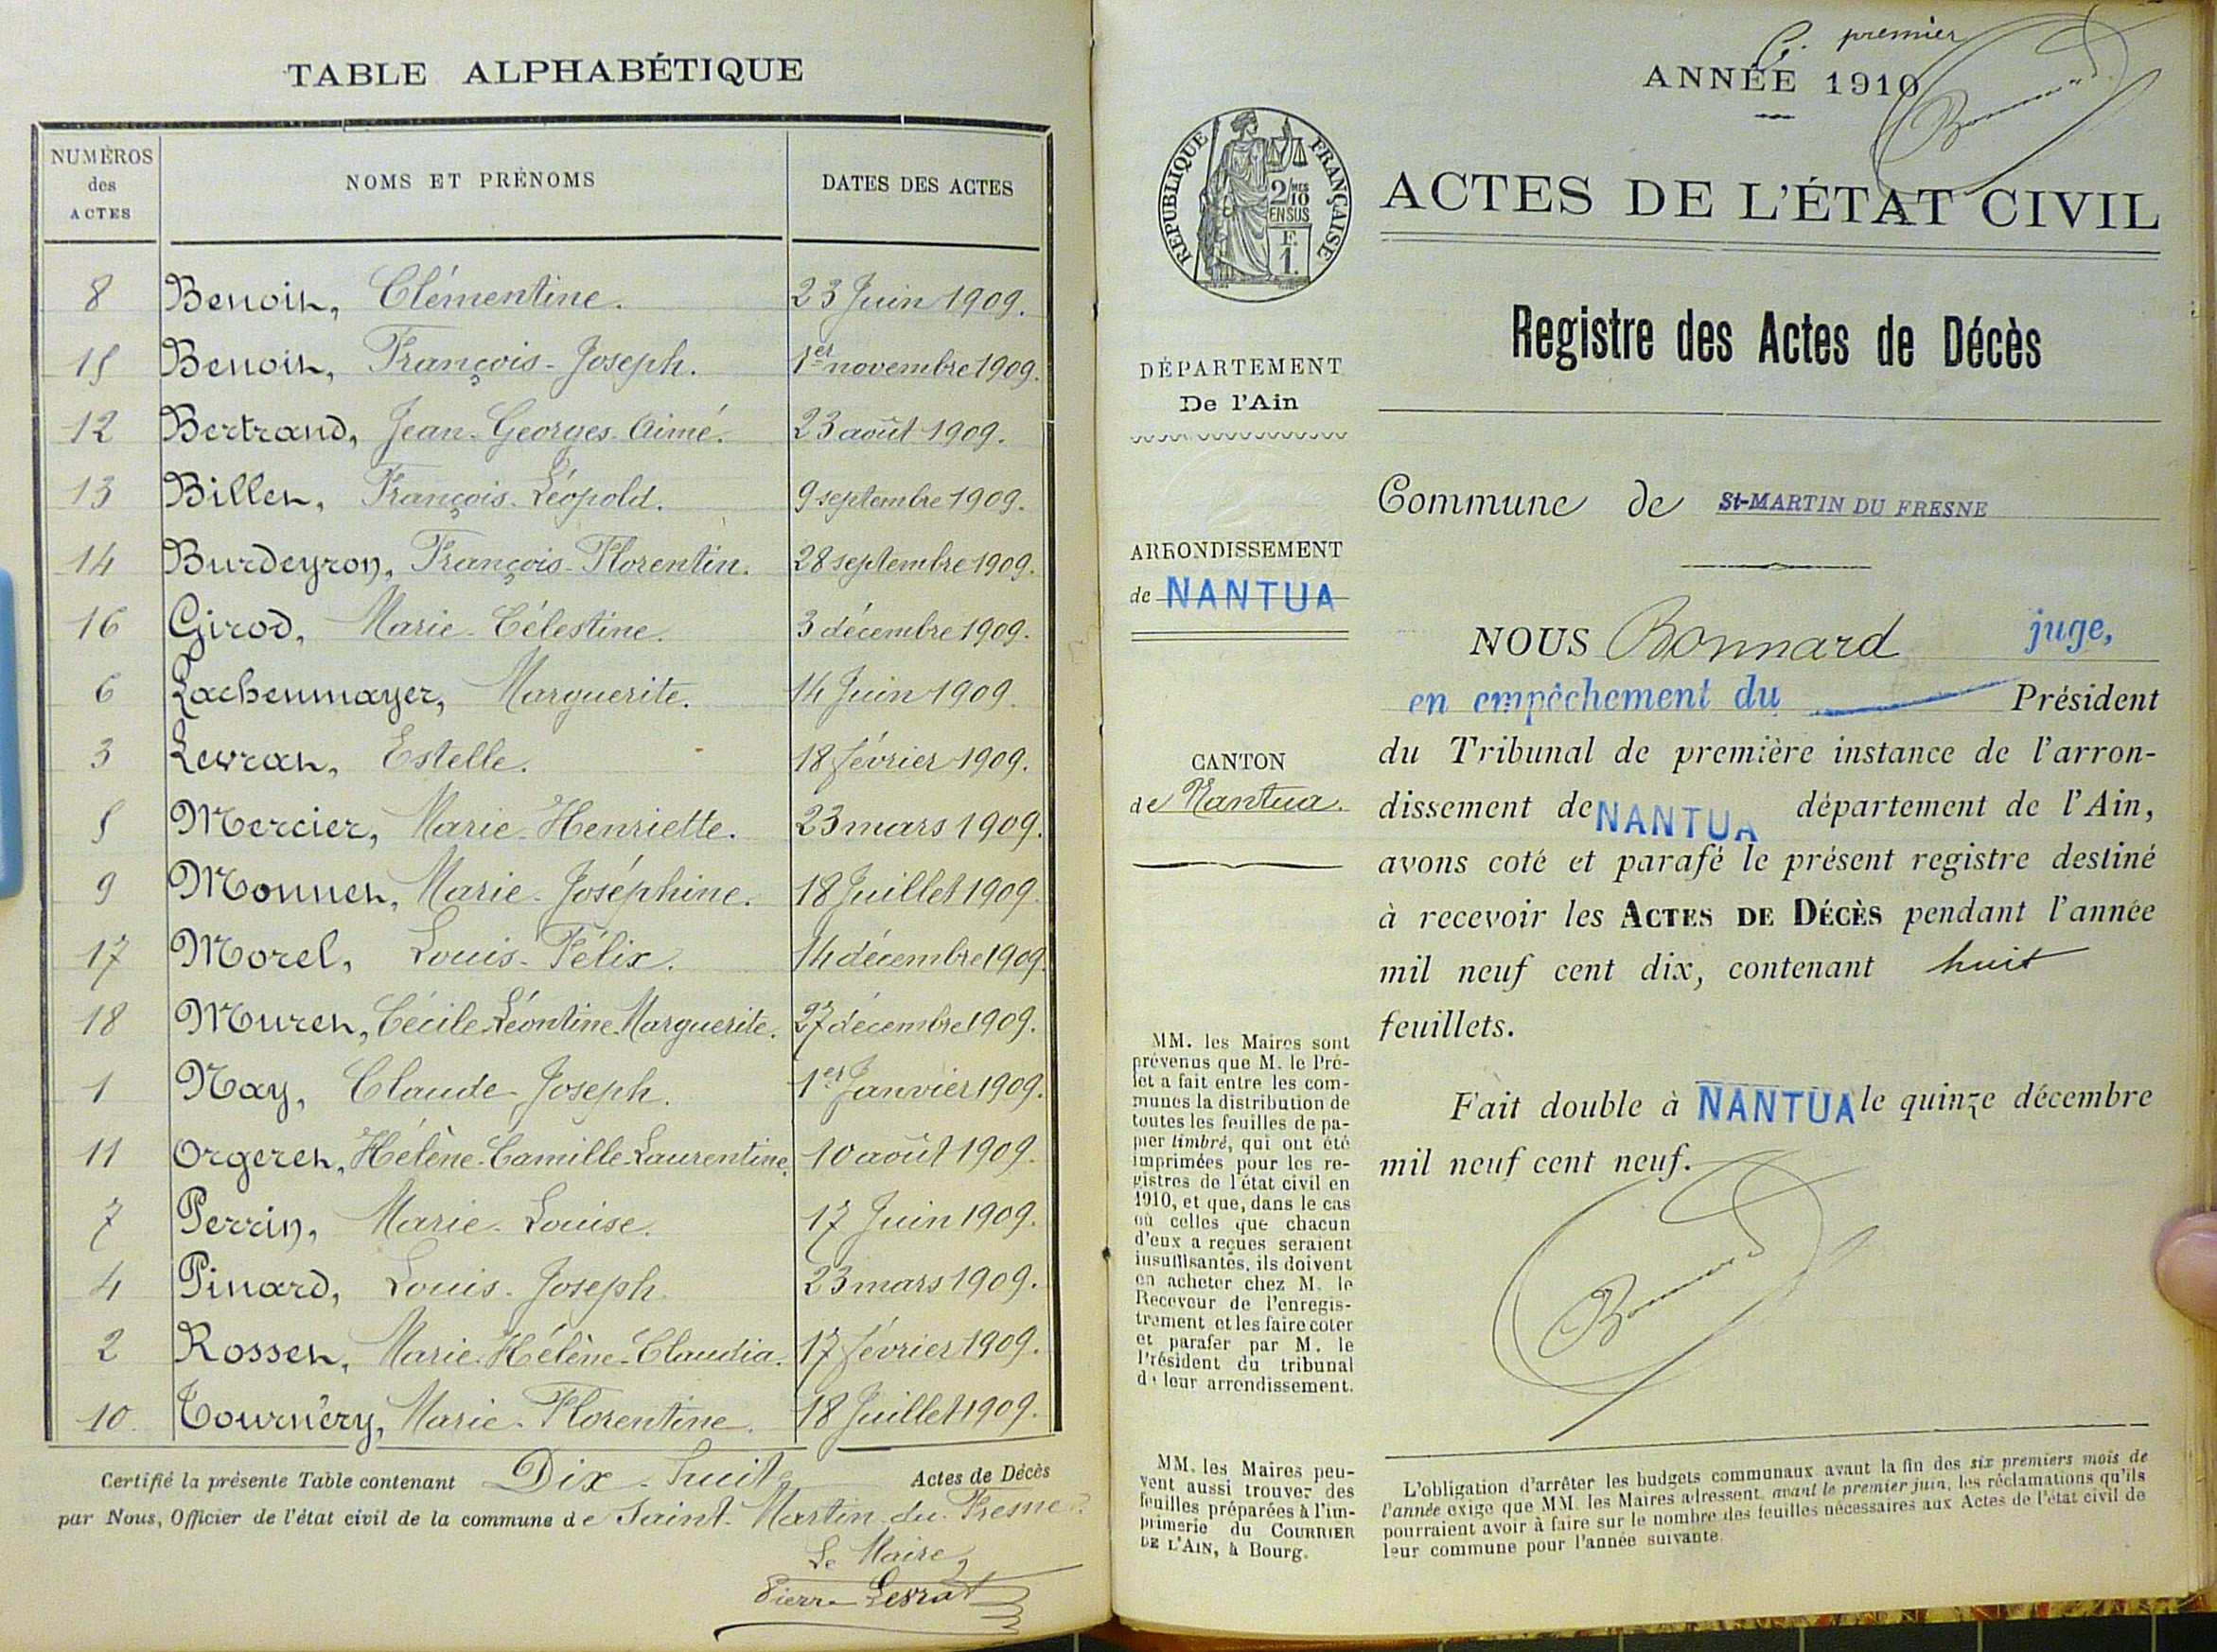 TABLE ALPHABÉTIQUE
NUMÉROS des ACTES NOMS ET PRÉNOMS DATES DES ACTES
8 Benoit, Clémentine. 23 Juin 1909.
15 Benoit, François-Joseph. 1er novembre 1909.
12 Bertrand, Jean-Georges-Aimé. 23 août 1909.
13 Billet, François-Léopold. 9 septembre 1909.
14 Burdeyron, François-Florentin. 28 septembre 1909.
16 Girod, Marie-Célestine. 3 décembre 1909.
6 Lachenmayer, Marguerite. 14 Juin 1909.
3 Levrat, Estelle. 18 février 1909.
5 Mercier, Marie-Henriette. 23 mars 1909.
9 Monnet, Marie-Joséphine. 18 Juillet 1909.
17 Morel, Louis-Félix. 14 décembre 1909.
18 Muret, Cécile-Léontine-Marguerite. 27 décembre 1909.
1 Nay, Claude-Joseph. 1er Janvier 1909.
11 Orgeret, Hélène-Camille-Laurentine. 10 août 1909.
7 Perrin, Marie-Louise. 17 Juin 1909.
4 Pinard, Louis-Joseph. 23 mars 1909.
2 Rosset, Marie-Hélène-Claudia. 17 février 1909.
10 Tournéry, Marie-Florentine. 18 Juillet 1909.
Certifié la présente Table contenant Dix-huit Actes de Décès
par Nous, Officier de l'état civil de la commune de Saint-Martin-du-Fresne.
Le Maire,
Pierre Levrat
premier
ANNÉE 1910
RÉPUBLIQUE FRANÇAISE
2/10 MES
EN SUS
F.
1.
ACTES DE L'ÉTAT CIVIL
Registre des Actes de Décès
DÉPARTEMENT
De l'Ain
ARRONDISSEMENT
de NANTUA
CANTON
de Nantua.
MM. les Maires sont
prévenus que M. le Pré-
fet a fait entre les com-
munes la distribution de
toutes les feuilles de pa-
pier timbré, qui ont été
imprimées pour les re-
gistres de l'état civil en
1910, et que, dans le cas
où celles que chacun
d'eux a reçues seraient
insuffisantes, ils doivent
en acheter chez M. le
Receveur de l'enregis-
trement et les faire coter
et parafer par M. le
Président du tribunal
de leur arrondissement.
MM. les Maires peu-
vent aussi trouver des
feuilles préparées à l'im-
primerie du COURRIER
DE L'AIN, à Bourg.
Commune de St-MARTIN DU FRESNE
NOUS Bonnard juge,
en empêchement du Président
du Tribunal de première instance de l'arron-
dissement de NANTUA département de l'Ain,
avons coté et parafé le présent registre destiné
à recevoir les ACTES DE DÉCÈS pendant l'année
mil neuf cent dix, contenant huit
feuillets.
Fait double à NANTUA le quinze décembre
mil neuf cent neuf.
L'obligation d'arrêter les budgets communaux avant la fin des six premiers mois de
l'année exige que MM. les Maires adressent, avant le premier juin, les réclamations qu'ils
pourraient avoir à faire sur le nombre des feuilles nécessaires aux Actes de l'état civil de
leur commune pour l'année suivante.